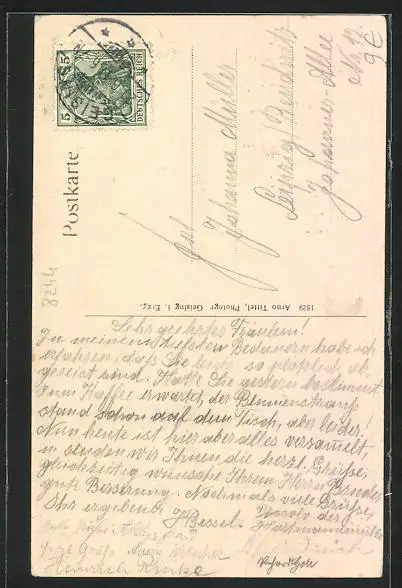 Postkarte
5 5
DEUTSCHES REICH
GEISING
Frl.
Johanna Müller
Leipzig/Reudnitz
Johannis-Allee
No. 12
9€
8244
1829 Arno Tittel, Photogr Geising i. Erzg.
Sehr geehrtes Fräulein!
In meinem tiefsten Bedauern habe ich
erfahren, daß Sie leider so plötzlich ab
gereist sind. Hatte Sie gestern bestimmt
zum Kaffee erwartet, der Blumenstrauß
stand schon auf dem Tisch, aber leider!
Nun heute ist hier aber alles versammelt,
u. senden wir Ihnen die herzl. Grüße,
gleichzeitig wünsche Ihrem Herrn Bruder
gute Besserung. Nochmals viele Grüße,
Ihr ergebener
Hessel
Hartmannmühle
Heinrich